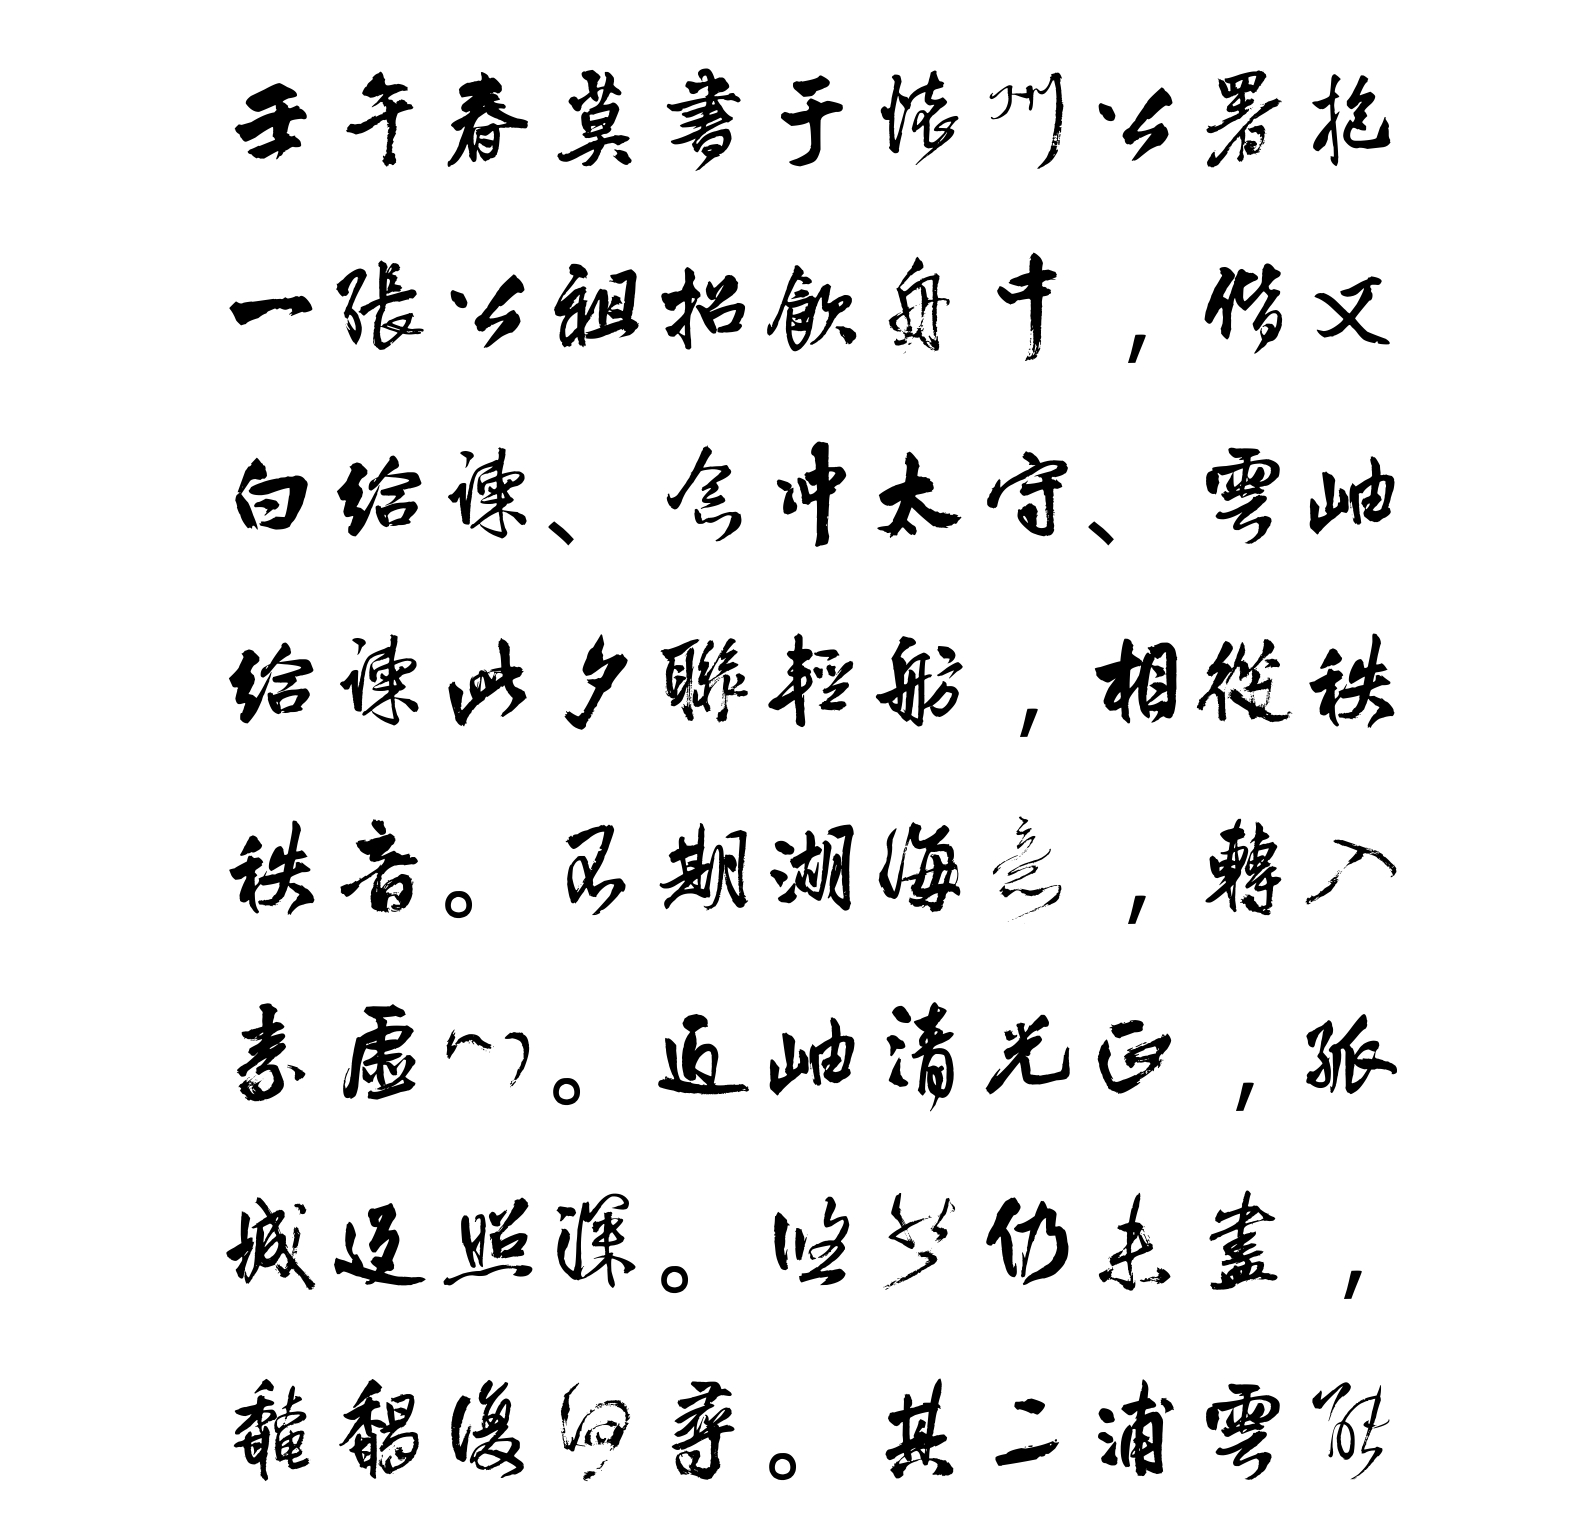 壬午春莫書于懷州公署抱
一張公祖招飲舟中，偕又
白給諫、念冲太守、雲岫
給諫此夕聯輕舫，相從秩
秩音。不期湖海意，轉入
素虛心。近岫清光正，孤
城返照深。悠然仍未盡，
馣馤復何尋。其二浦雲能